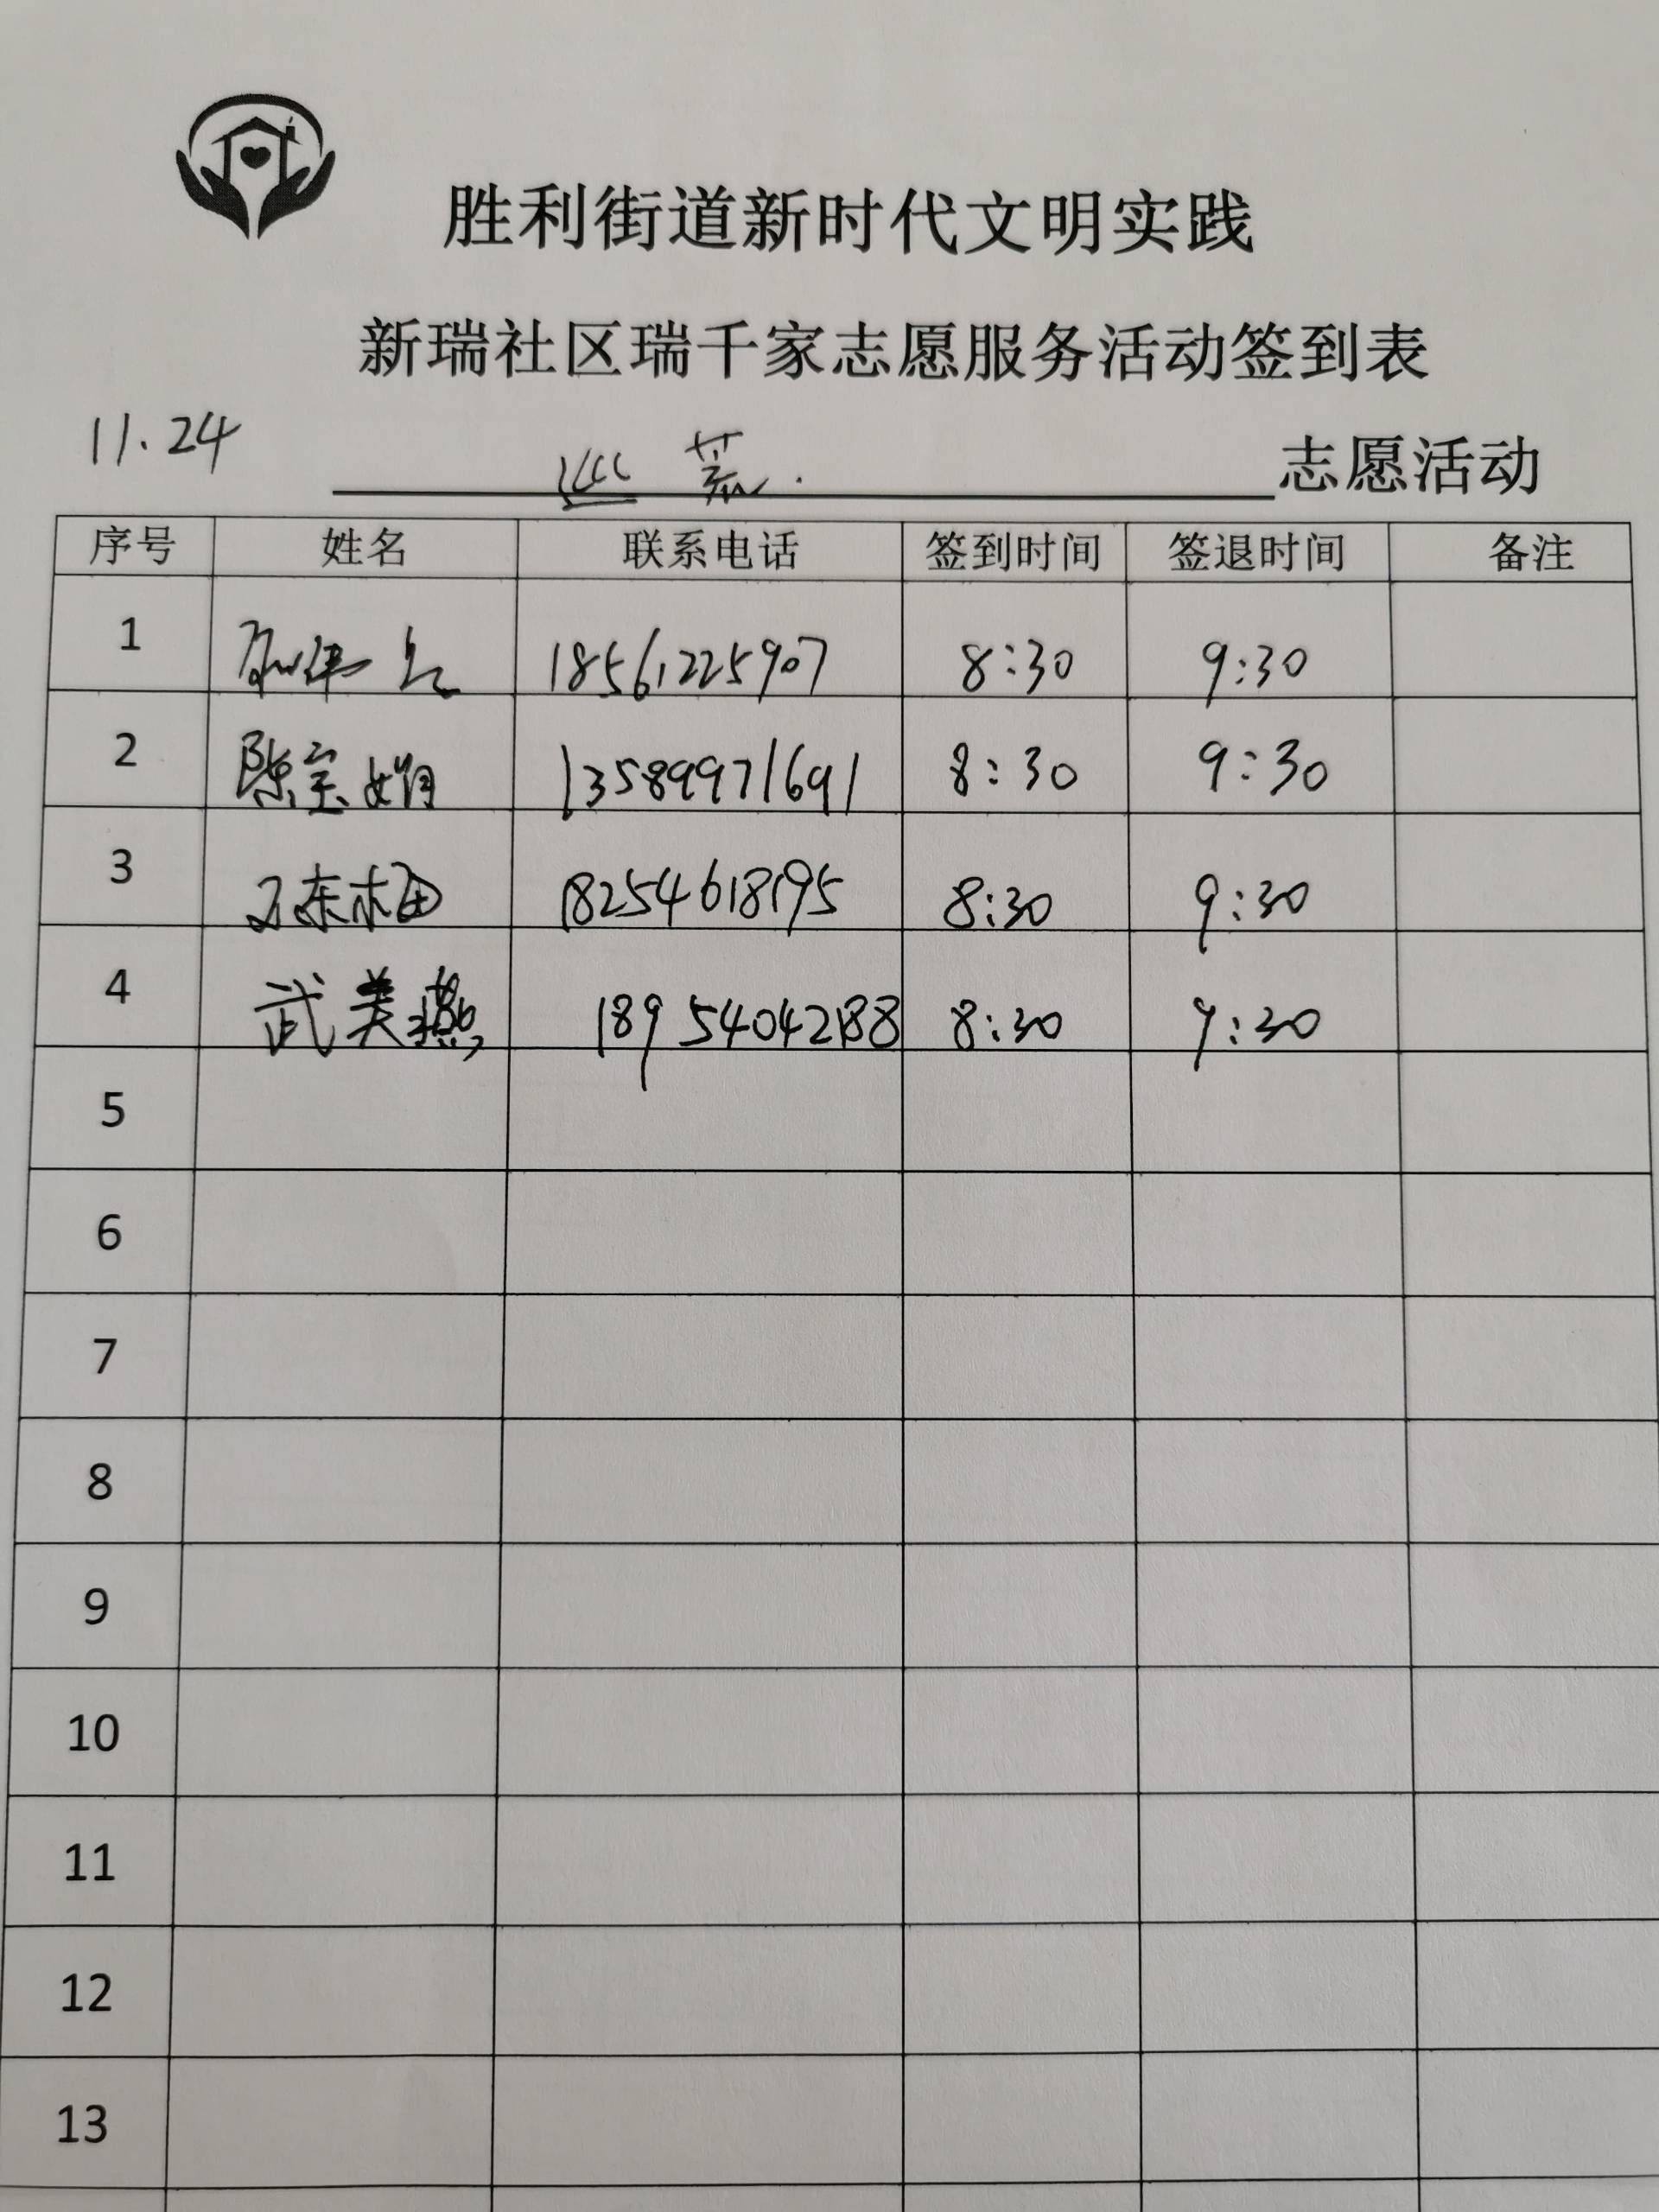 胜利街道新时代文明实践
新瑞社区瑞千家志愿服务活动签到表
11.24
巡 志愿活动
序号 姓名 联系电话 签到时间 签退时间 备注
1 18561225907 8:30 9:30
2 陈宝娟 13589971691 8:30 9:30
3 18254618195 8:30 9:30
4 武美燕 18954042188 8:30 9:30
5
6
7
8
9
10
11
12
13